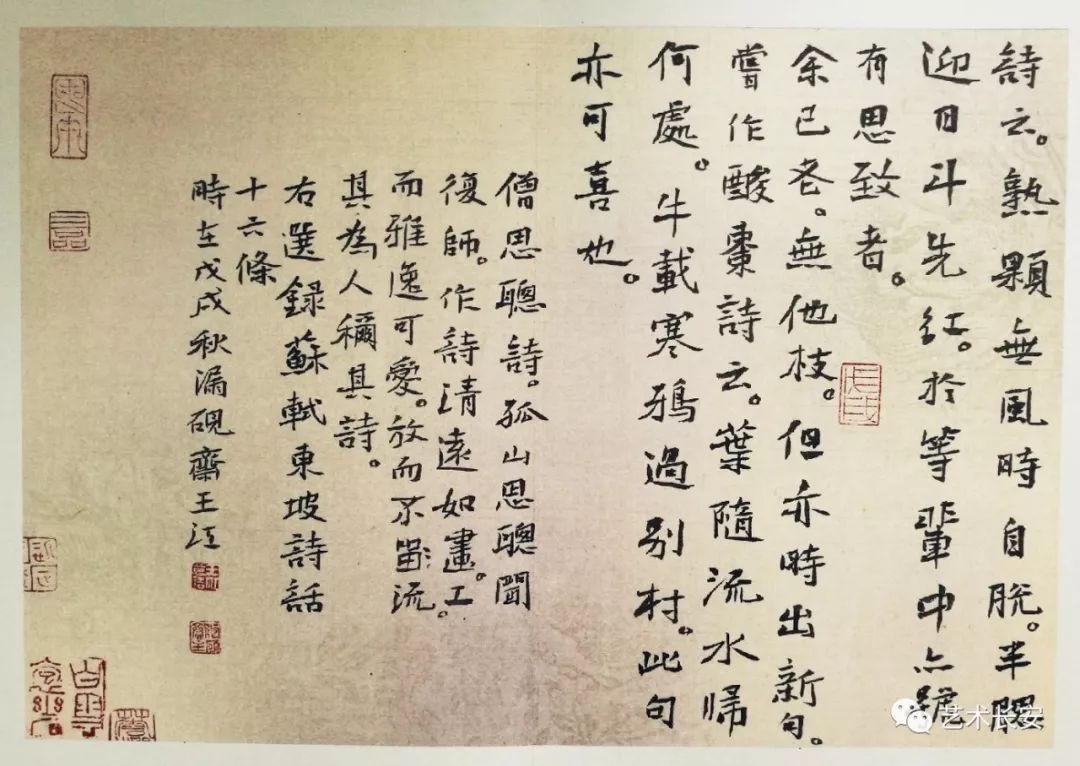 詩云。熟顆無風時自脫。半腮
迎日斗先紅。於等輩中亦號
有思致者。
余已老。無他技。但亦時出新句。
嘗作酸棗詩云。葉隨流水歸
何處。牛載寒鴉過別村。此句
亦可喜也。
僧思聰詩。孤山思聰聞
復師。作詩清遠如畫。工
而雅逸可愛。放而不畱流。
其為人稱其詩。
右選録蘇軾東坡詩話
十六條
時在戊戌秋漏硯齋王江
戊戌
艺术长安